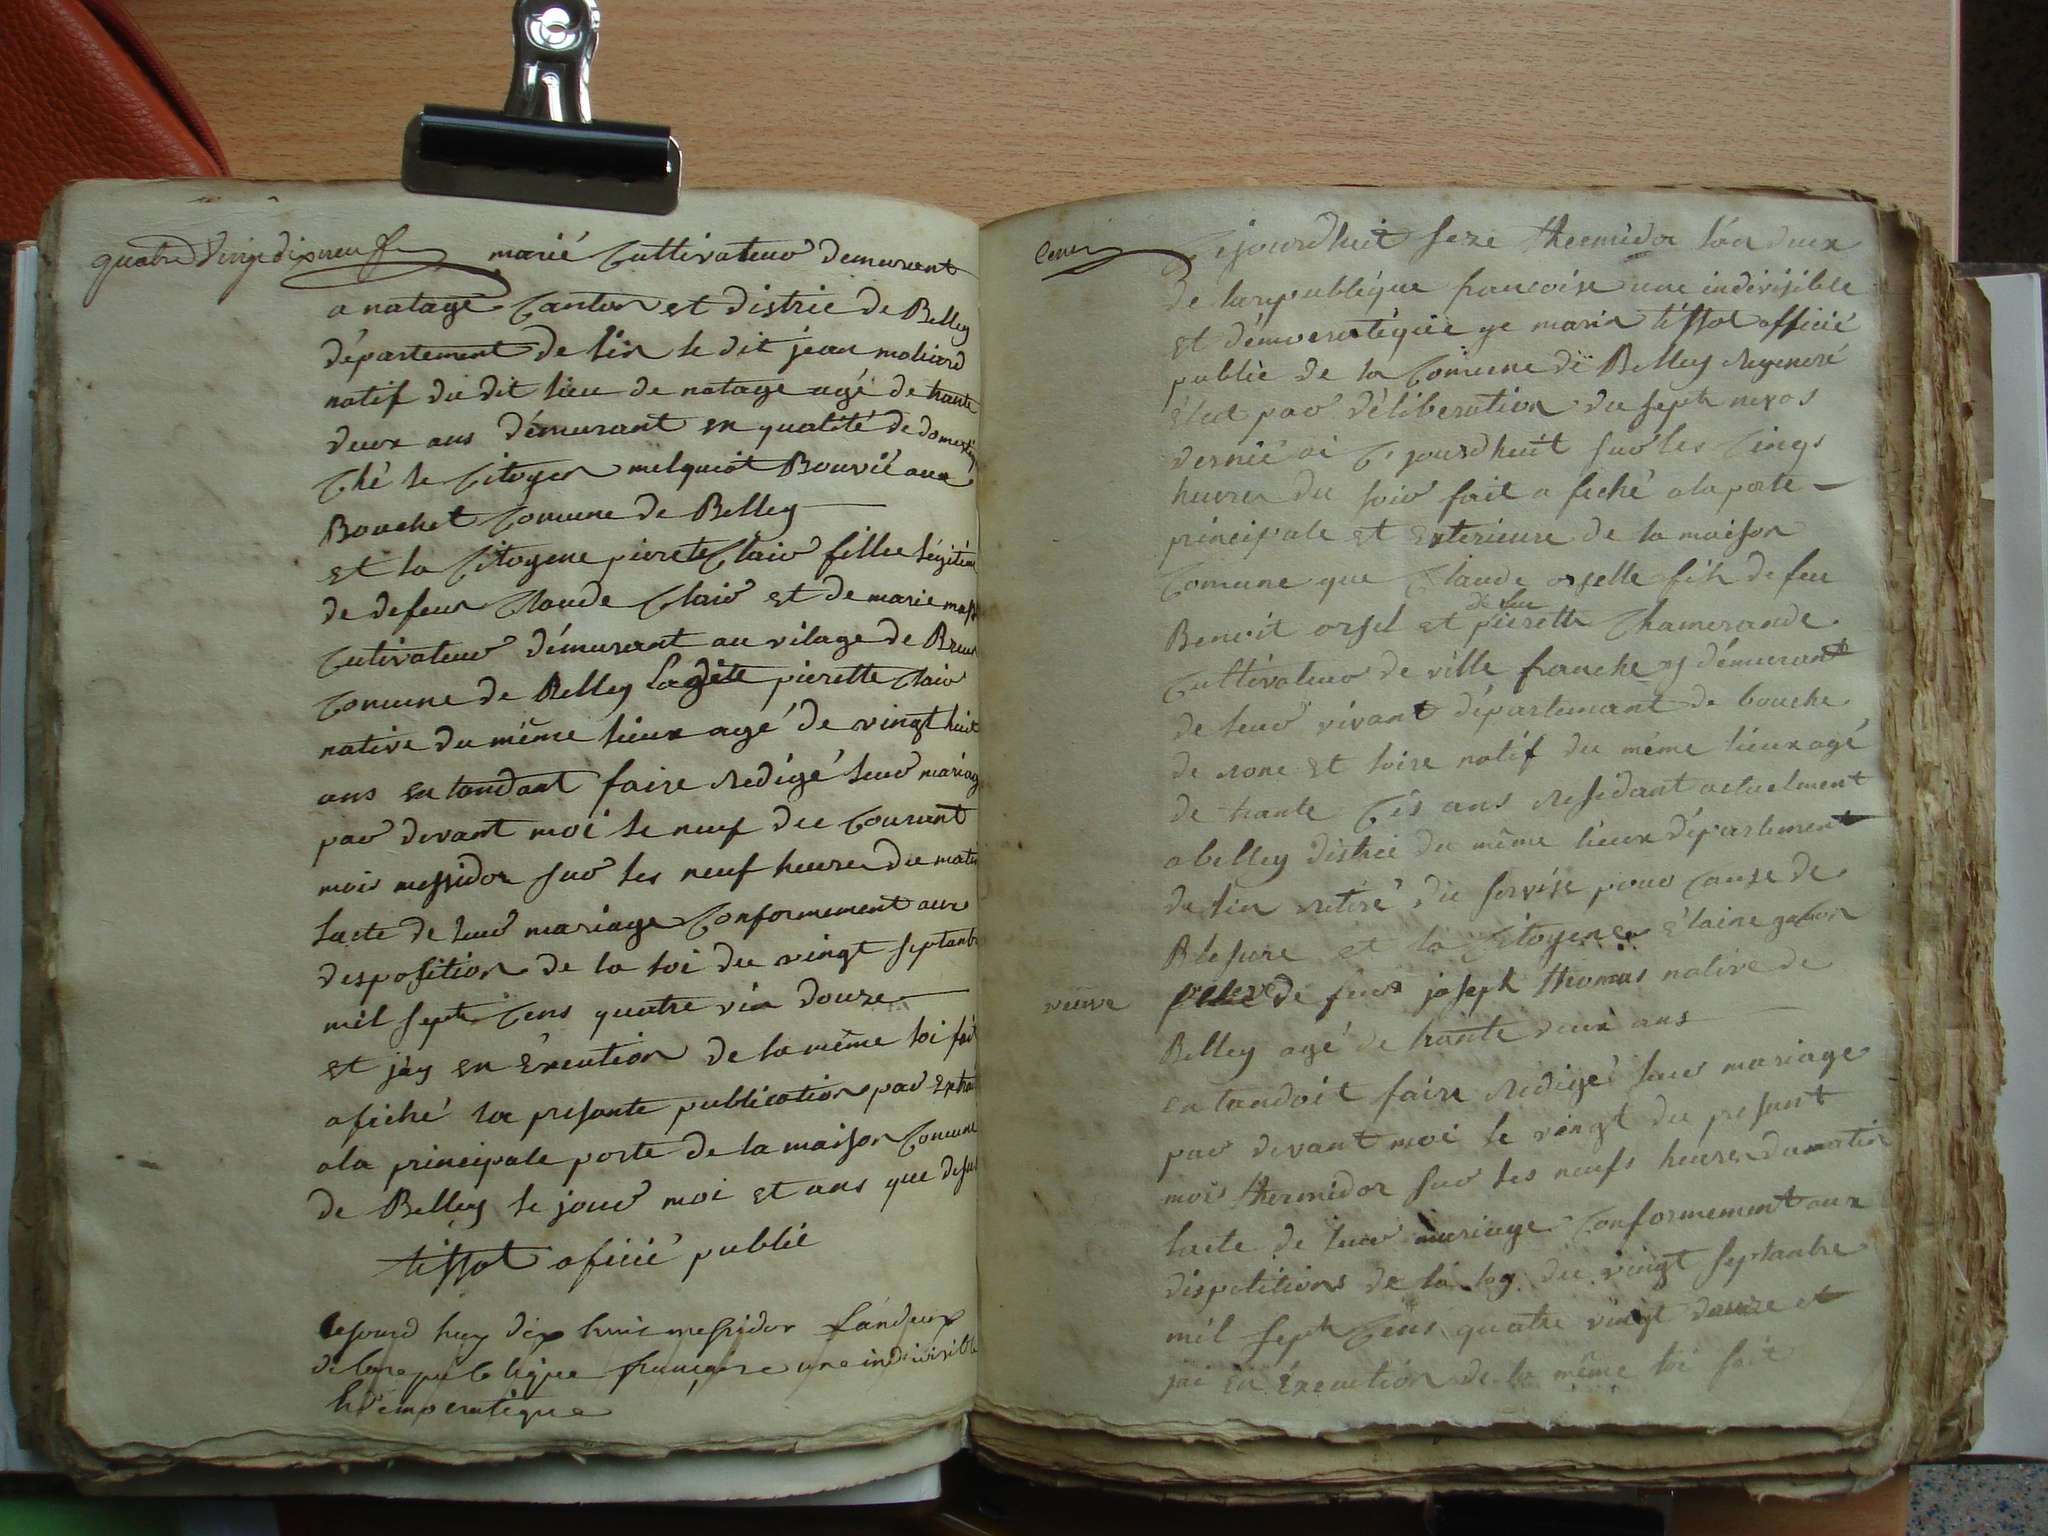 quatre Vingt dix neuf
marié Cultivateur demurant
a natage Canton et distric de Belley
département de lin le dit jean moliard
natif du dit lieu de natage agé de trante
deux ans démurant en qualité de domesti
Ché le Citoyen melquiot Bouvié aux
Bouchet Comune de Belley
et la Citoyene pierete Clair fillee légitim
de defeur Claude Clair et de marie
Cutivateur démurant au vilage de
Comune de Belley Ladite pierette Clair
native du même lieux agé de vingt huit
ans en tandant faire redigé leur mariag
par devant moi le neuf du Courant
mois messidor sur les neuf heures du matin
lacte de leur mariage Conformement aux
desposition de la loi du vingt septanb
mil sept Cens quatre vin douze
et jay en Exeution de la même loi fait
afiché la presante publication par Extrai
ala principale porte de la maison Comune
de Belley le jour moi et ans que desus
tissot oficié publié
Cejourd huy dix huit messidor Landeux
de larepublique française une indivisible
h démocratique
Cenn
Cejourdhuit seze thermidor lan deux
de larepubléque francoise une indivisible
et démocratéque ge marin tissot officié
publié de la Comune de Belley regeneré
élut par déliberation du sept nivos
dernié ai C, jourdheuit sur les Cinqs
heures du soir fait a fiché ala porte
principale et Exterieure de la maison
Comune que Claude orselle fils de feu
Benoit orsel et de feu pierette Chamerande
Cultivateur de ville franche y démurant
de leur vivant départemant de bouche
de rone et loire natif du même lieux agé
de trante Cis ans residant actuelment
a belley distric du même lieux département
de lin retiré du servise pour Cause de
Blesure et la Citoyene élaine
veuve
veuve de feur joseph thomas native de
Belley agé de trante deux ans
en tandoit faire redigé leur mariage
par devant moi le vingt du presant
mois thermidor sur les neufs heures du matin
lacte de leur mariage Conformement aux
dispotitions de la loy du vingt septanbre
mil sept Cens quatre vingt douze et
jai en Exeution de la même loi fait